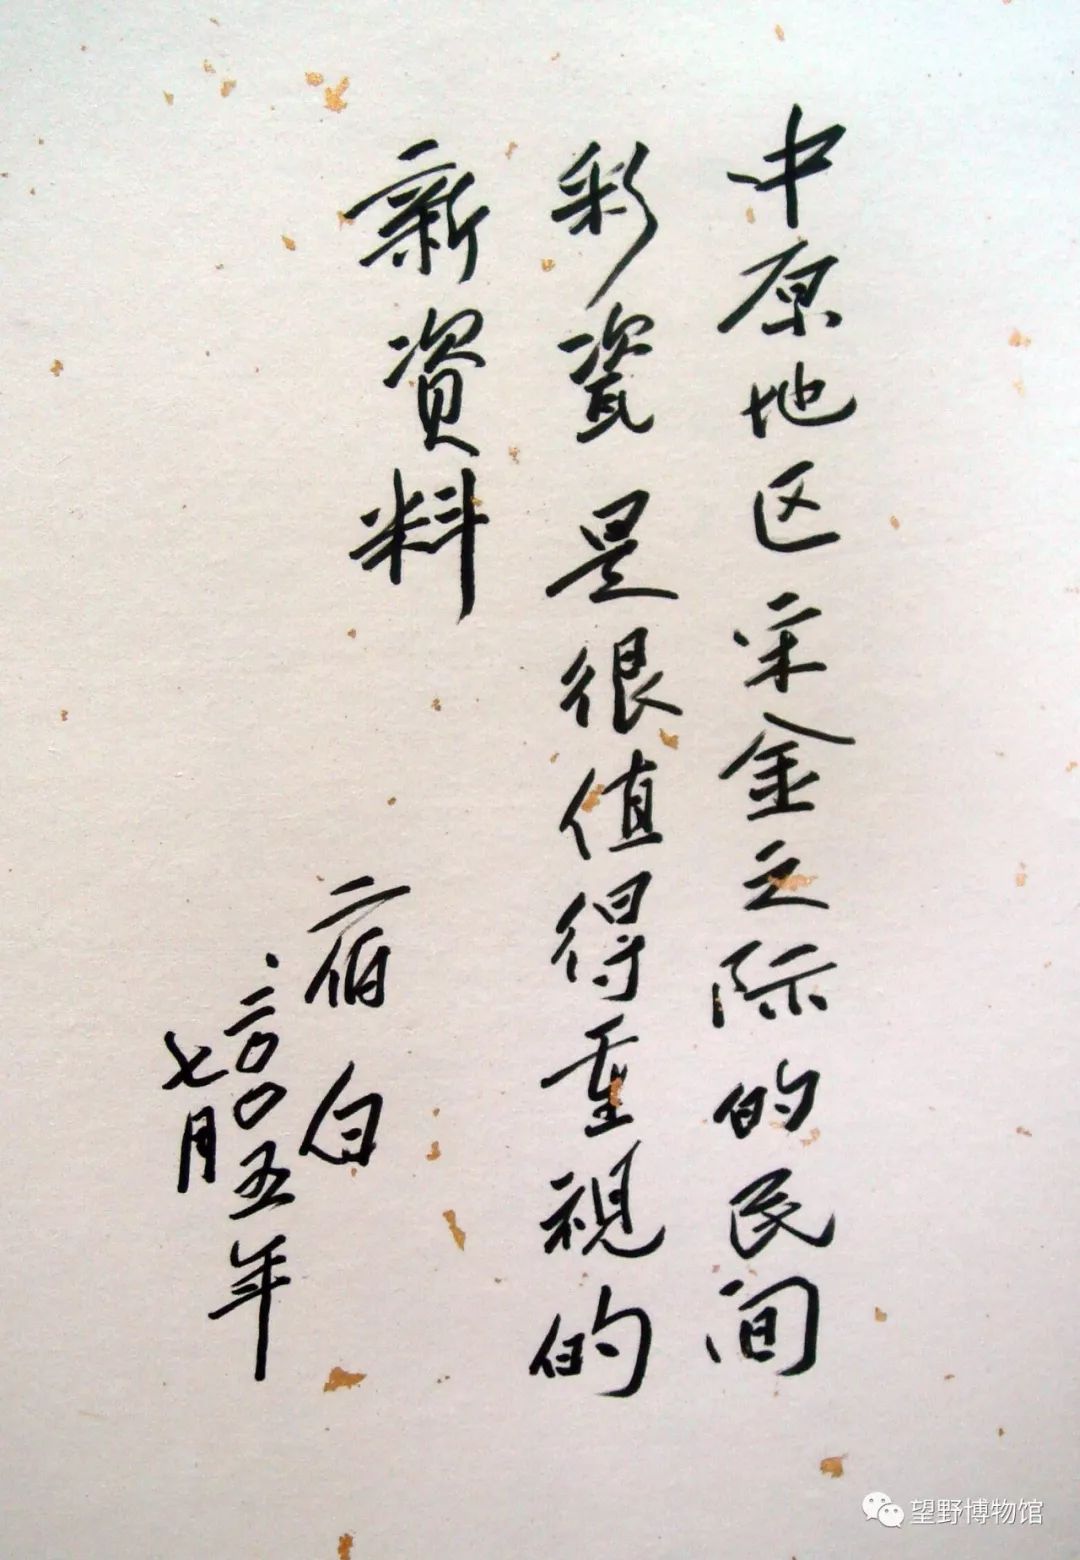 中原地区宋金之际的民间
彩瓷是很值得重视的
新資料
宿白
二〇〇五年
七月
望野博物馆